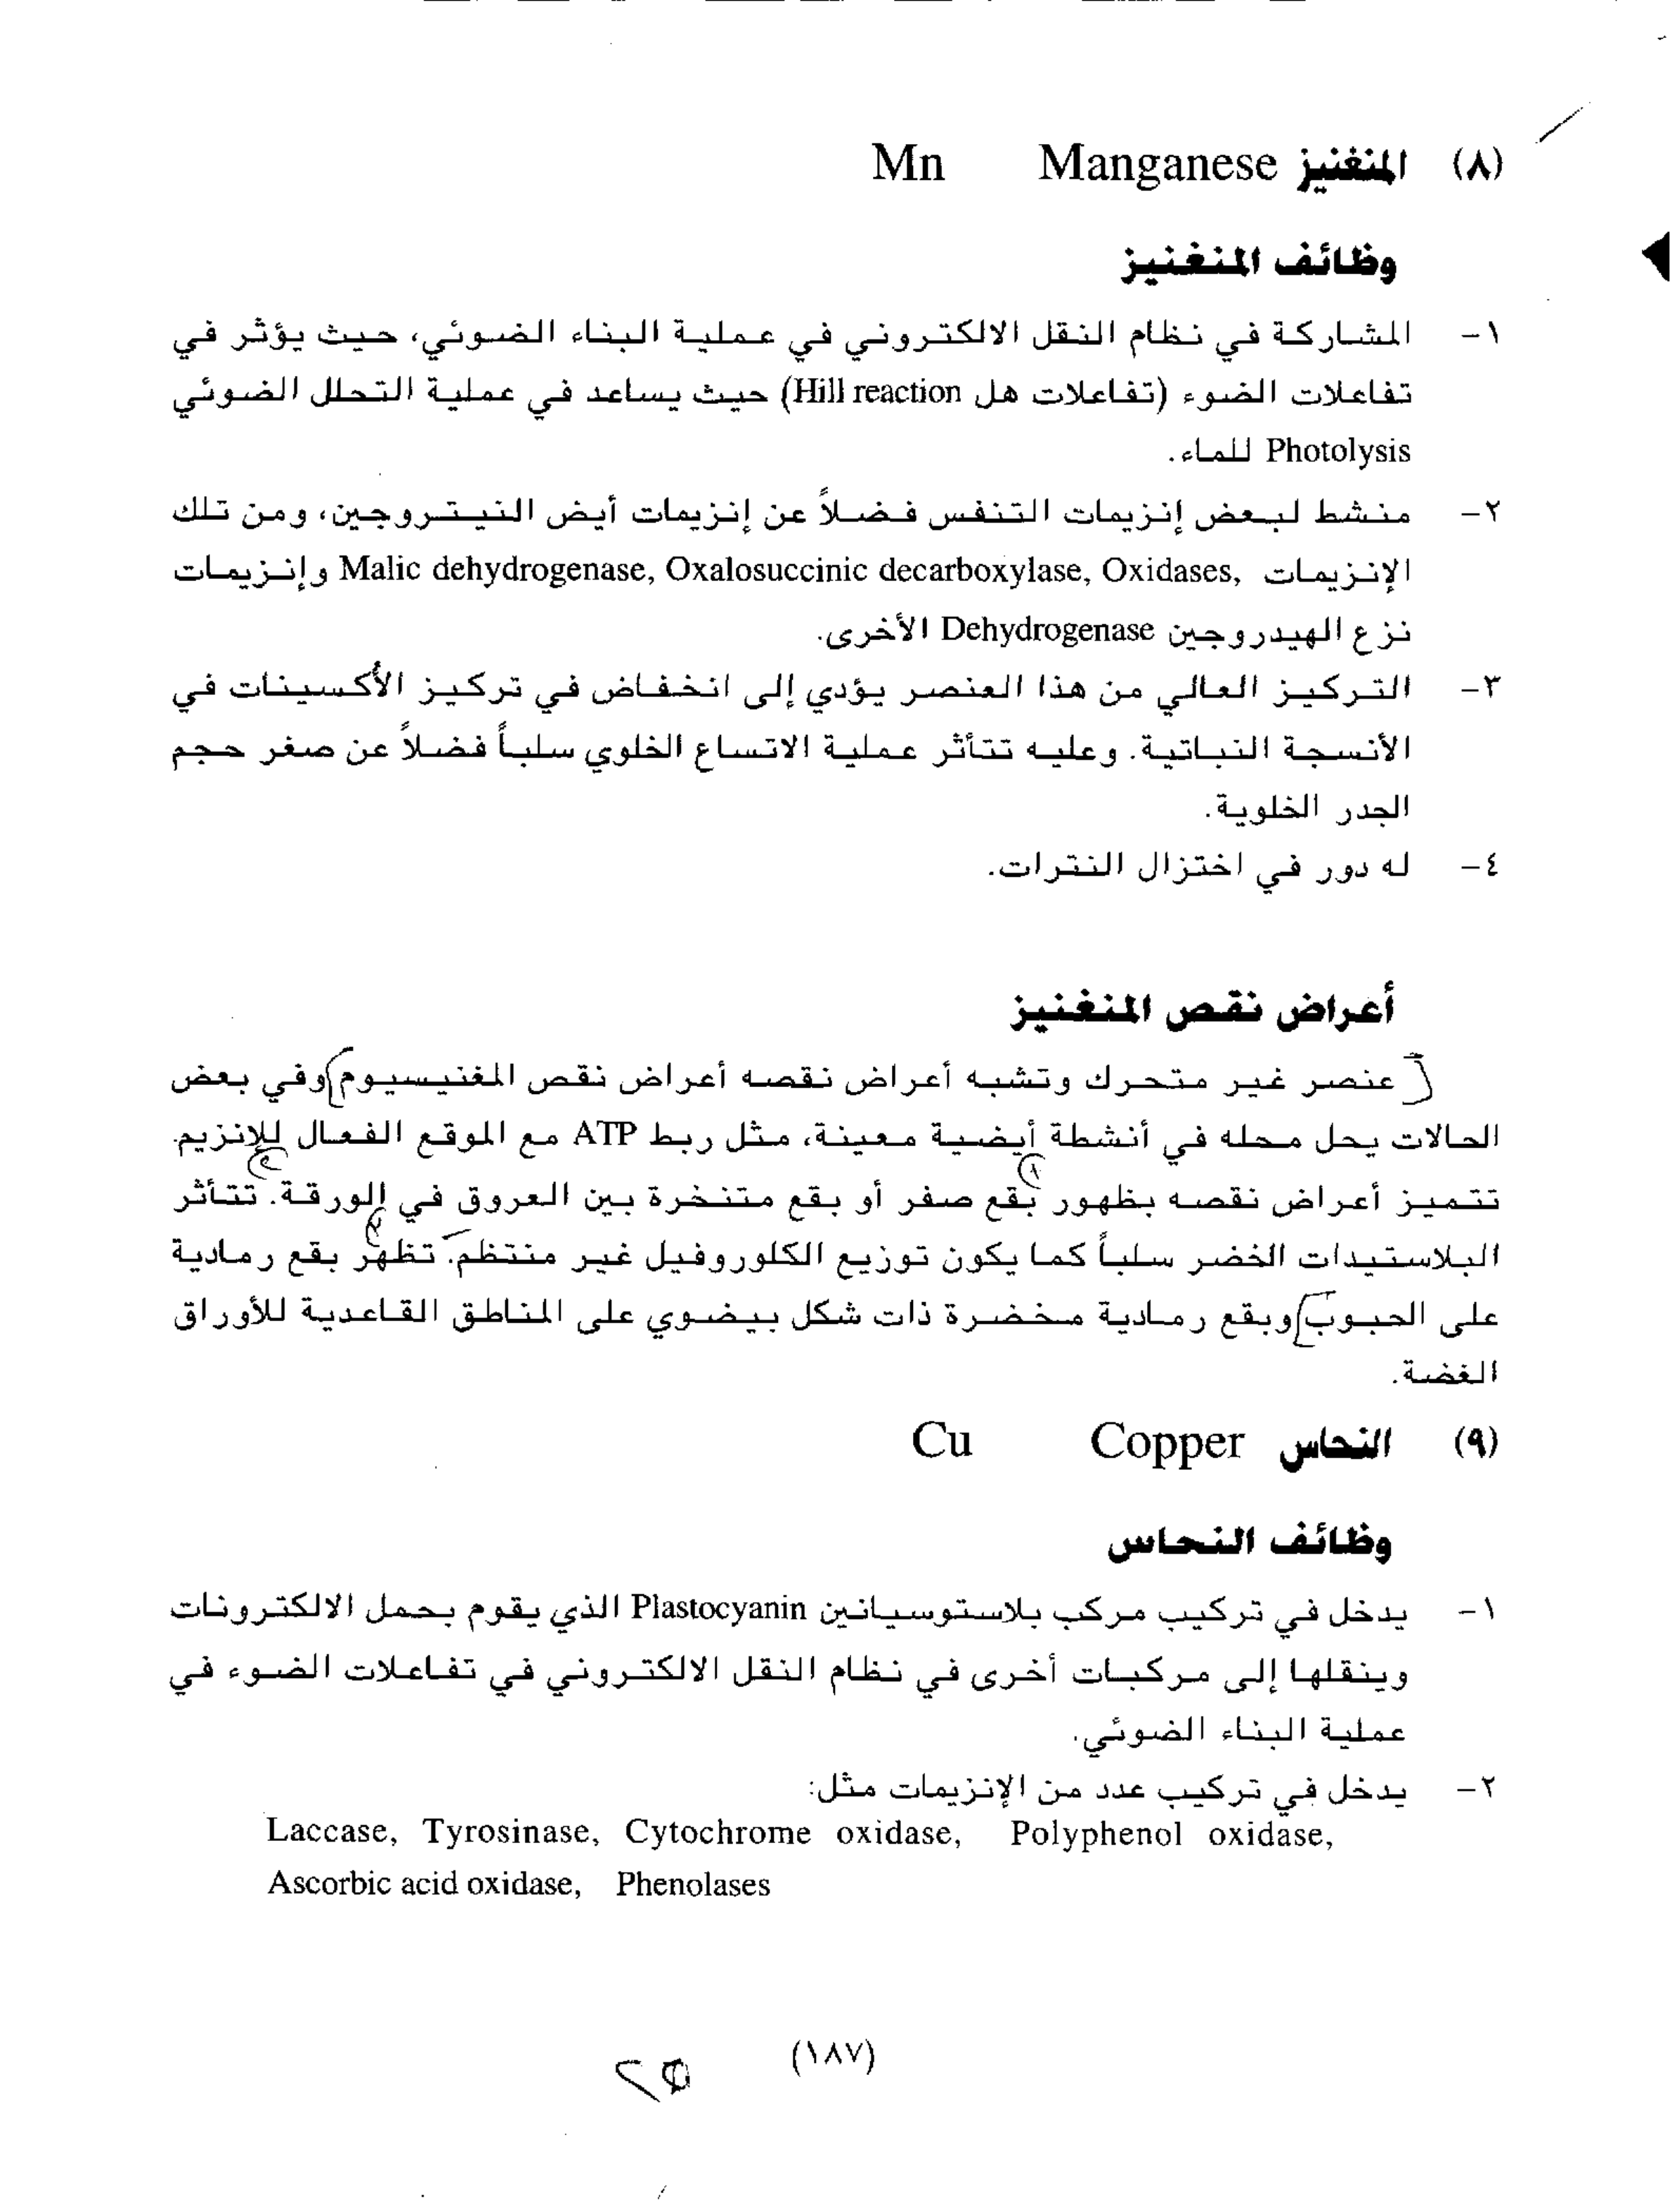 (٨) المنغنيز Manganese Mn
وظائف المنغنيز
١- المشاركة في نظام النقل الالكتروني في عملية البناء الضوئي، حيث يؤثر في
تفاعلات الضوء (تفاعلات هل Hill reaction) حيث يساعد في عملية التحلل الضوئي
Photolysis للماء.
٢- منشط لبعض إنزيمات التنفس فضلاً عن إنزيمات أيض النيتروجين، ومن تلك
الإنزيمات Malic dehydrogenase, Oxalosuccinic decarboxylase, Oxidases, وإنزيمات
نزع الهيدروجين Dehydrogenase الأخرى.
٣- التركيز العالي من هذا العنصر يؤدي إلى انخفاض في تركيز الأكسينات في
الأنسجة النباتية. وعليه تتأثر عملية الاتساع الخلوي سلباً فضلاً عن صغر حجم
الجدر الخلوية.
٤- له دور في اختزال النترات.
أعراض نقص المنغنيز
عنصر غير متحرك وتشبه أعراض نقصه أعراض نقص المغنيسيوم وفي بعض
الحالات يحل محله في أنشطة أيضية معينة، مثل ربط ATP مع الموقع الفعال للإنزيم.
تتميز أعراض نقصه بظهور بقع صفر أو بقع متنخرة بين العروق في الورقة. تتأثر
البلاستيدات الخضر سلباً كما يكون توزيع الكلوروفيل غير منتظم. تظهر بقع رمادية
على الحبوب وبقع رمادية مخضرة ذات شكل بيضوي على المناطق القاعدية للأوراق
الغضة.
(٩) النحاس Copper Cu
وظائف النحاس
١- يدخل في تركيب مركب بلاستوسيانين Plastocyanin الذي يقوم بحمل الالكترونات
وينقلها إلى مركبات أخرى في نظام النقل الالكتروني في تفاعلات الضوء في
عملية البناء الضوئي.
٢- يدخل في تركيب عدد من الإنزيمات مثل:
Laccase, Tyrosinase, Cytochrome oxidase, Polyphenol oxidase,
Ascorbic acid oxidase, Phenolases
(١٨٧)